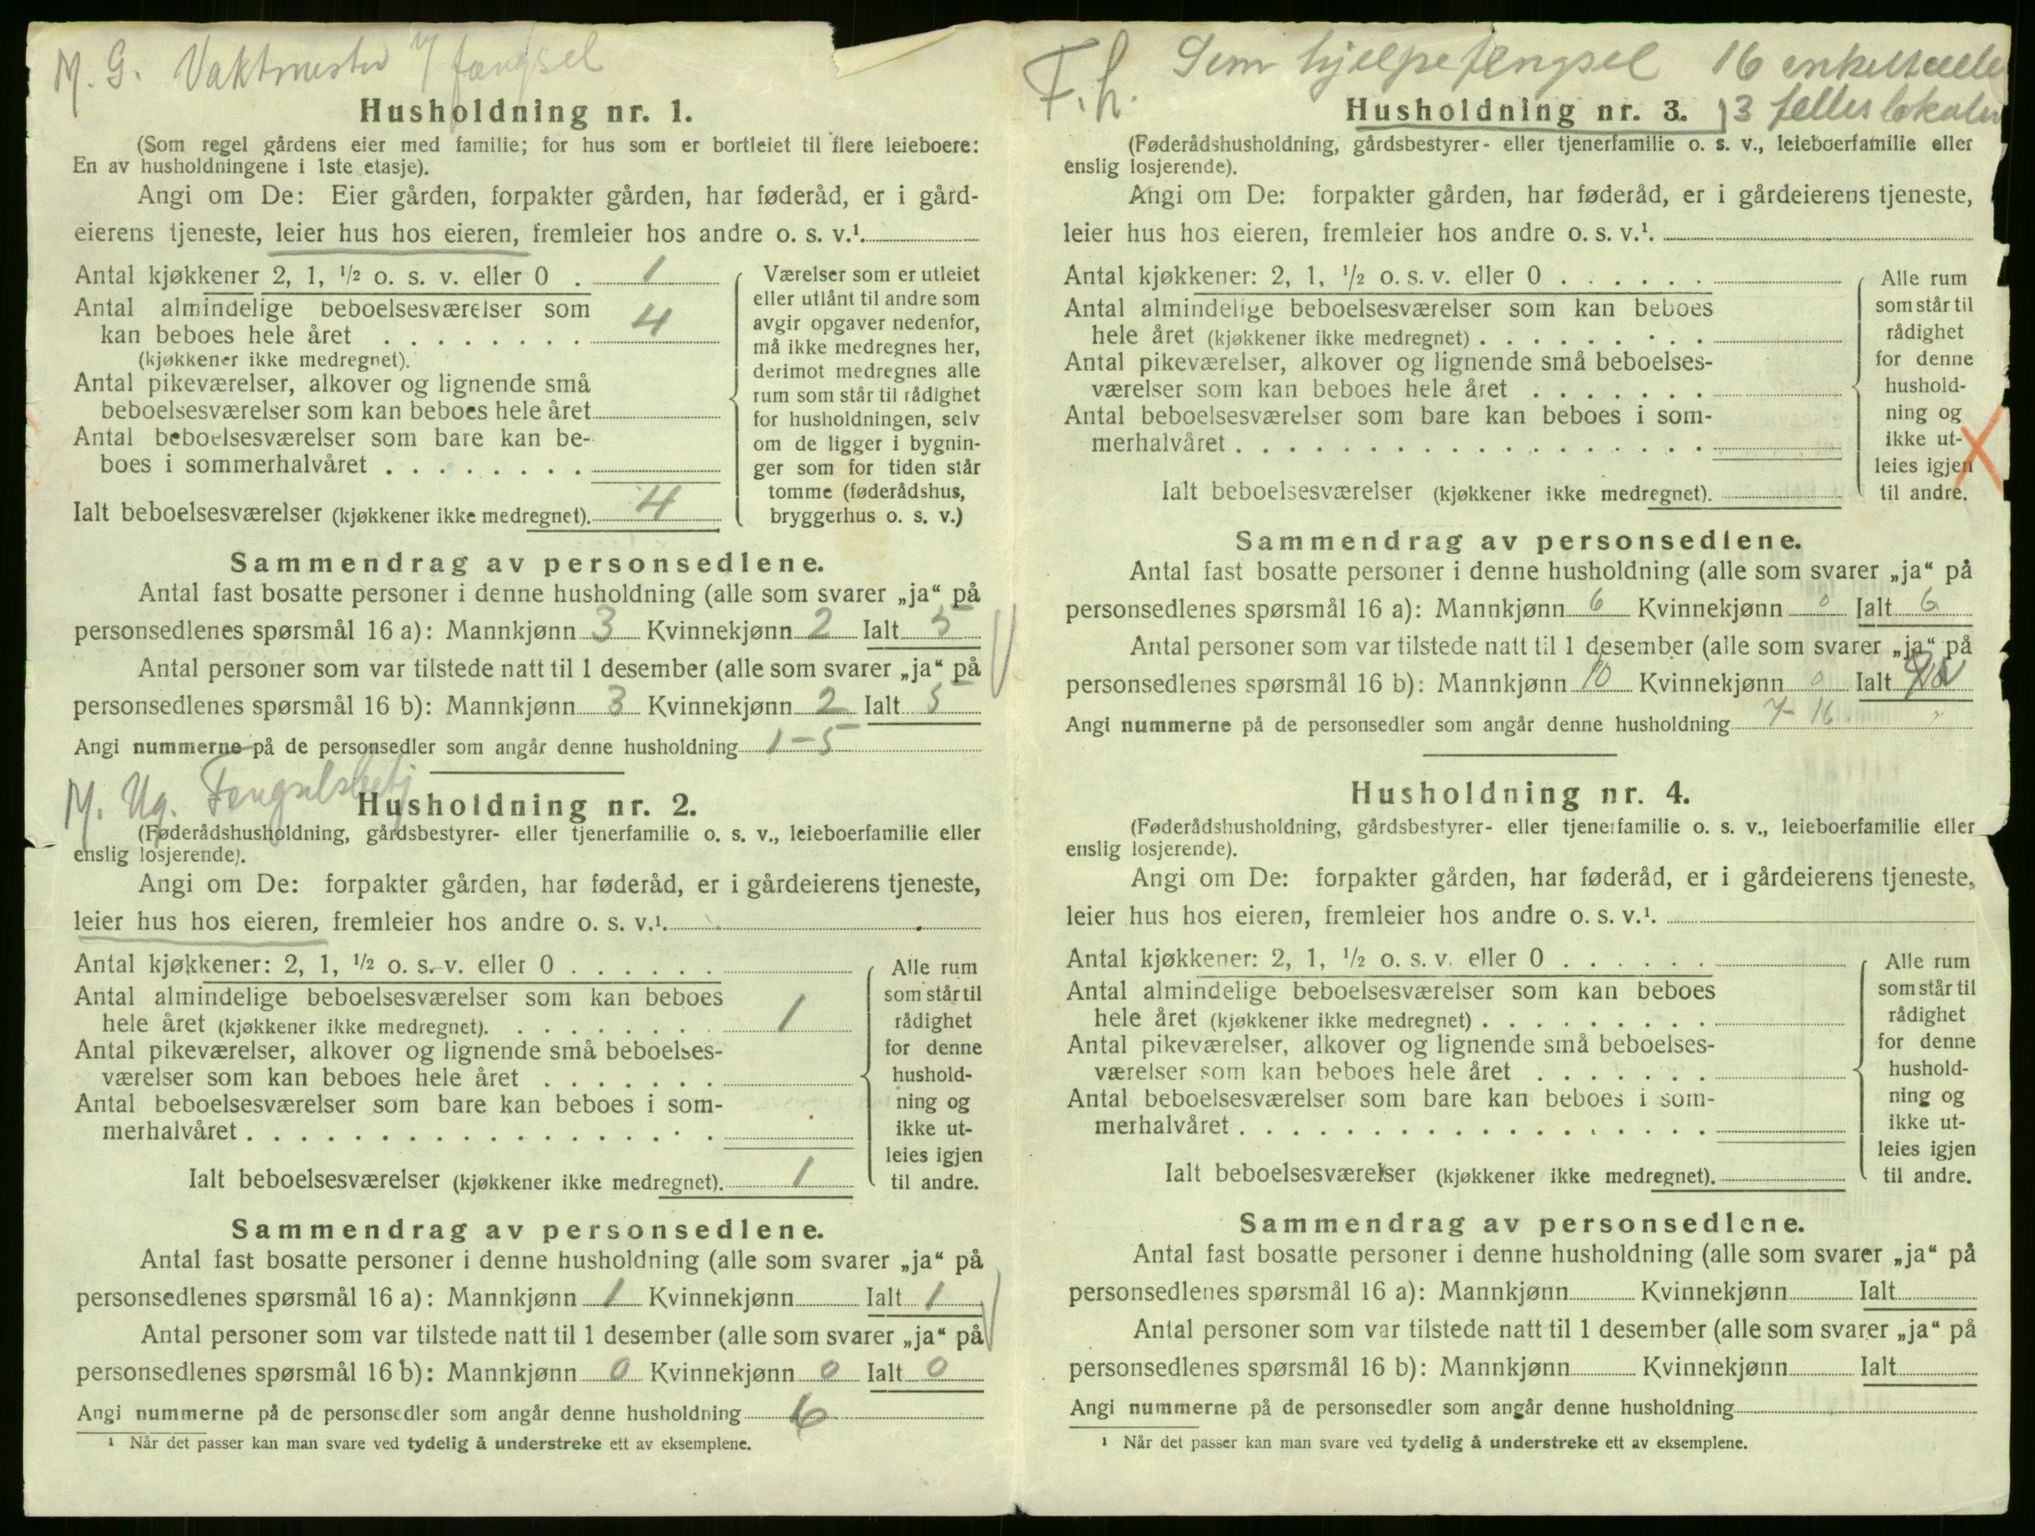 M. G. Vaktmester v/ fængsel
Husholdning nr. 1.
(Som regel gårdens eier med familie; for hus som er bortleiet til flere leieboere:
En av husholdningene i 1ste etasje).
Angi om De: Eier gården, forpakter gården, har føderåd, er i gård-
eierens tjeneste, leier hus hos eieren, fremleier hos andre o. s. v.¹.
Antal kjøkkener 2, 1, ½ o. s. v. eller 0 . 1
Antal almindelige beboelsesværelser som
kan beboes hele året . . . . . . . . 4
(kjøkkener ikke medregnet).
Antal pikeværelser, alkover og lignende små
beboelsesværelser som kan beboes hele året
Antal beboelsesværelser som bare kan be-
boes i sommerhalvåret . . . . . . . .
Ialt beboelsesværelser (kjøkkener ikke medregnet). 4
Værelser som er utleiet
eller utlånt til andre som
avgir opgaver nedenfor,
må ikke medregnes her,
derimot medregnes alle
rum som står til rådighet
for husholdningen, selv
om de ligger i bygnin-
ger som for tiden står
tomme (føderådshus,
bryggerhus o. s. v.)
Sammendrag av personsedlene.
Antal fast bosatte personer i denne husholdning (alle som svarer „ja“ på
personsedlenes spørsmål 16 a): Mannkjønn 3 Kvinnekjønn 2 Ialt 5
Antal personer som var tilstede natt til 1 desember (alle som svarer „ja“ på
personsedlenes spørsmål 16 b): Mannkjønn 3 Kvinnekjønn 2 Ialt 5
Angi nummerne på de personsedler som angår denne husholdning 1-5
M. Ug. Fengselsbetj
Husholdning nr. 2.
(Føderådshusholdning, gårdsbestyrer- eller tjenerfamilie o. s. v., leieboerfamilie eller
enslig losjerende).
Angi om De: forpakter gården, har føderåd, er i gårdeierens tjeneste,
leier hus hos eieren, fremleier hos andre o. s. v.¹.
Antal kjøkkener: 2, 1, ½ o. s. v. eller 0 . . . . . .
Antal almindelige beboelsesværelser som kan beboes
hele året (kjøkkener ikke medregnet). . . . . . . . . 1
Antal pikeværelser, alkover og lignende små beboelses-
værelser som kan beboes hele året . . . . . . .
Antal beboelsesværelser som bare kan beboes i som-
merhalvåret . . . . . . . . . . . . . . . . . .
Ialt beboelsesværelser (kjøkkener ikke medregnet). 1
Alle rum
som står til
rådighet
for denne
hushold-
ning og
ikke ut-
leies igjen
til andre.
Sammendrag av personsedlene.
Antal fast bosatte personer i denne husholdning (alle som svarer „ja“ på
personsedlenes spørsmål 16 a): Mannkjønn 1 Kvinnekjønn Ialt 1
Antal personer som var tilstede natt til 1 desember (alle som svarer „ja“ på
personsedlenes spørsmål 16 b): Mannkjønn 0 Kvinnekjønn 0 Ialt 0
Angi nummerne på de personsedler som angår denne husholdning 6
¹ Når det passer kan man svare ved tydelig å understreke ett av eksemplene.
F.h. Sem hjelpefengsel 16 enkeltcelle
Husholdning nr. 3. 3 felles lokaler
(Føderådshusholdning, gårdsbestyrer- eller tjenerfamilie o. s. v., leieboerfamilie eller
enslig losjerende).
Angi om De: forpakter gården, har føderåd, er i gårdeierens tjeneste,
leier hus hos eieren, fremleier hos andre o. s. v.¹.
Antal kjøkkener: 2, 1, ½ o. s. v. eller 0 . . . . . .
Antal almindelige beboelsesværelser som kan beboes
hele året (kjøkkener ikke medregnet) . . . . . . . . .
Antal pikeværelser, alkover og lignende små beboelses-
værelser som kan beboes hele året . . . . . . .
Antal beboelsesværelser som bare kan beboes i som-
merhalvåret . . . . . . . . . . . . . . . . . .
Ialt beboelsesværelser (kjøkkener ikke medregnet).
Alle rum
som står til
rådighet
for denne
hushold-
ning og
ikke ut-
leies igjen
til andre.
Sammendrag av personsedlene.
Antal fast bosatte personer i denne husholdning (alle som svarer „ja“ på
personsedlenes spørsmål 16 a): Mannkjønn 6 Kvinnekjønn 0 Ialt 6
Antal personer som var tilstede natt til 1 desember (alle som svarer „ja“ på
personsedlenes spørsmål 16 b): Mannkjønn 10 Kvinnekjønn 0 Ialt
Angi nummerne på de personsedler som angår denne husholdning 7-16
Husholdning nr. 4.
(Føderådshusholdning, gårdsbestyrer- eller tjenerfamilie o. s. v., leieboerfamilie eller
enslig losjerende).
Angi om De: forpakter gården, har føderåd, er i gårdeierens tjeneste,
leier hus hos eieren, fremleier hos andre o. s. v.¹.
Antal kjøkkener: 2, 1, ½ o. s. v. eller 0 . . . . . .
Antal almindelige beboelsesværelser som kan beboes
hele året (kjøkkener ikke medregnet) . . . . . . . . .
Antal pikeværelser, alkover og lignende små beboelses-
værelser som kan beboes hele året . . . . . . .
Antal beboelsesværelser som bare kan beboes i som-
merhalvåret . . . . . . . . . . . . . . . . . .
Ialt beboelsesværelser (kjøkkener ikke medregnet).
Alle rum
som står til
rådighet
for denne
hushold-
ning og
ikke ut-
leies igjen
til andre.
Sammendrag av personsedlene.
Antal fast bosatte personer i denne husholdning (alle som svarer „ja“ på
personsedlenes spørsmål 16 a): Mannkjønn Kvinnekjønn Ialt
Antal personer som var tilstede natt til 1 desember (alle som svarer „ja“ på
personsedlenes spørsmål 16 b): Mannkjønn Kvinnekjønn Ialt
Angi nummerne på de personsedler som angår denne husholdning
¹ Når det passer kan man svare ved tydelig å understreke ett av eksemplene.